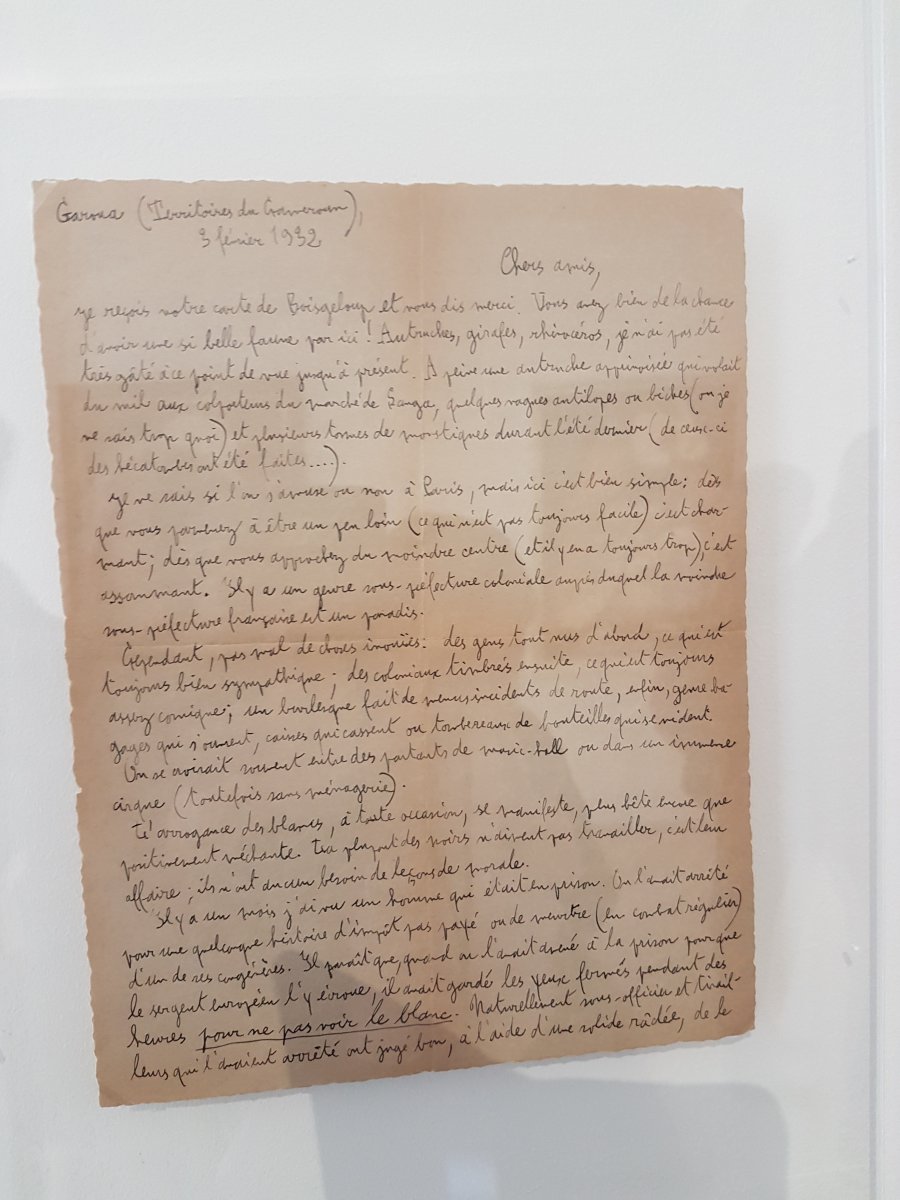 Garoua (Territoires du Cameroun),
3 février 1932
Chers amis,
Je reçois votre carte de Boisgeloup et vous dis merci. Vous avez bien de la chance
d'avoir une si belle faune par ici ! Autruches, girafes, rhinocéros, je n'ai pas été
très gâté à ce point de vue jusqu'à présent. A peine une autruche apprivoisée qui volait
du mil aux colporteurs du marché de Sanga, quelques vagues antilopes ou biches (ou je
ne sais trop quoi) et plusieurs tonnes de moustiques durant l'été dernier (de ceux-ci
des hécatombes ont été faites....).
Je ne sais si l'on s'amuse ou non à Paris, mais ici c'est bien simple : dès
que vous parvenez à être un peu loin (ce qui n'est pas toujours facile) c'est char-
mant ; dès que vous approchez du moindre centre (et il y en a toujours trop) c'est
assommant. Il y a un genre sous-préfecture coloniale auprès duquel la moindre
sous-préfecture française est un paradis.
Cependant, pas mal de choses inouïes : des gens tout nus d'abord, ce qui est
toujours bien sympathique ; des coloniaux timbrés ensuite, ce qui est toujours
assez comique ; un burlesque fait de menus incidents de route, enfin, genre ba-
gages qui s'ouvrent, caisses qui cassent ou tombereaux de bouteilles qui se vident.
On se croirait souvent entre des portants de music-hall ou dans un immense
cirque (toutefois sans ménagerie).
L'arrogance des blancs, à toute occasion, se manifeste, plus bête encore que
positivement méchante. La plupart des noirs n'aiment pas travailler, c'est leur
affaire ; ils n'ont aucun besoin de leçons de morale.
Il y a un mois j'ai vu un homme qui était en prison. On l'avait arrêté
pour une quelconque histoire d'impôt pas payé ou de meurtre (en combat régulier)
d'un de ses congénères. Il paraît que, quand on l'avait amené à la prison pour que
le sergent européen l'y écroue, il avait gardé les yeux fermés pendant des
heures pour ne pas voir le blanc. Naturellement sous-officier et tirail-
leurs qui l'avaient arrêté ont jugé bon, à l'aide d'une solide râclée, de le